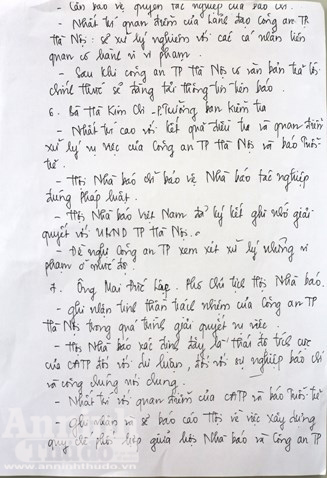 - Cần bảo vệ quyền tác nghiệp của báo chí.
- Nhất trí quan điểm của lãnh đạo Công an TP
Hà Nội: sẽ xử lý nghiêm với các cá nhân liên
quan có hành vi vi phạm.
- Sau khi công an TP Hà Nội có văn bản trả lời
chính thức sẽ đăng tải thông tin trên báo.
6. Bà Hà Kim Chi - P.Trưởng ban kiểm tra
- Nhất trí cao với kết quả điều tra và quan điểm
xử lý vụ việc của Công an TP Hà Nội và báo Tuổi
trẻ.
- Hội Nhà báo chỉ bảo vệ Nhà báo tác nghiệp
đúng pháp luật.
- Hội Nhà báo Việt Nam đã ký kết ghi nhớ giải
quyết với UBND TP Hà Nội.
- Đề nghị Công an TP xem xét xử lý những vi
phạm ở mức độ.
7. Ông Mai Đức Lộc. Phó Chủ tịch Hội Nhà báo.
- ghi nhận tinh thần trách nhiệm của Công an TP
Hà Nội trong quá trình giải quyết vụ việc.
- Hội Nhà báo xác định đây là thái độ tích cực
của CATP đối với dư luận, đối với sự nghiệp báo chí
và công chúng nói chung.
- Nhất trí với quan điểm của CATP và báo Tuổi trẻ
- Ghi nhận và sẽ báo cáo Hội về việc xây dựng
quy chế phối hợp giữa Hội Nhà báo và Công an TP
An ninh Thủ đô
www.anninhthudo.vn